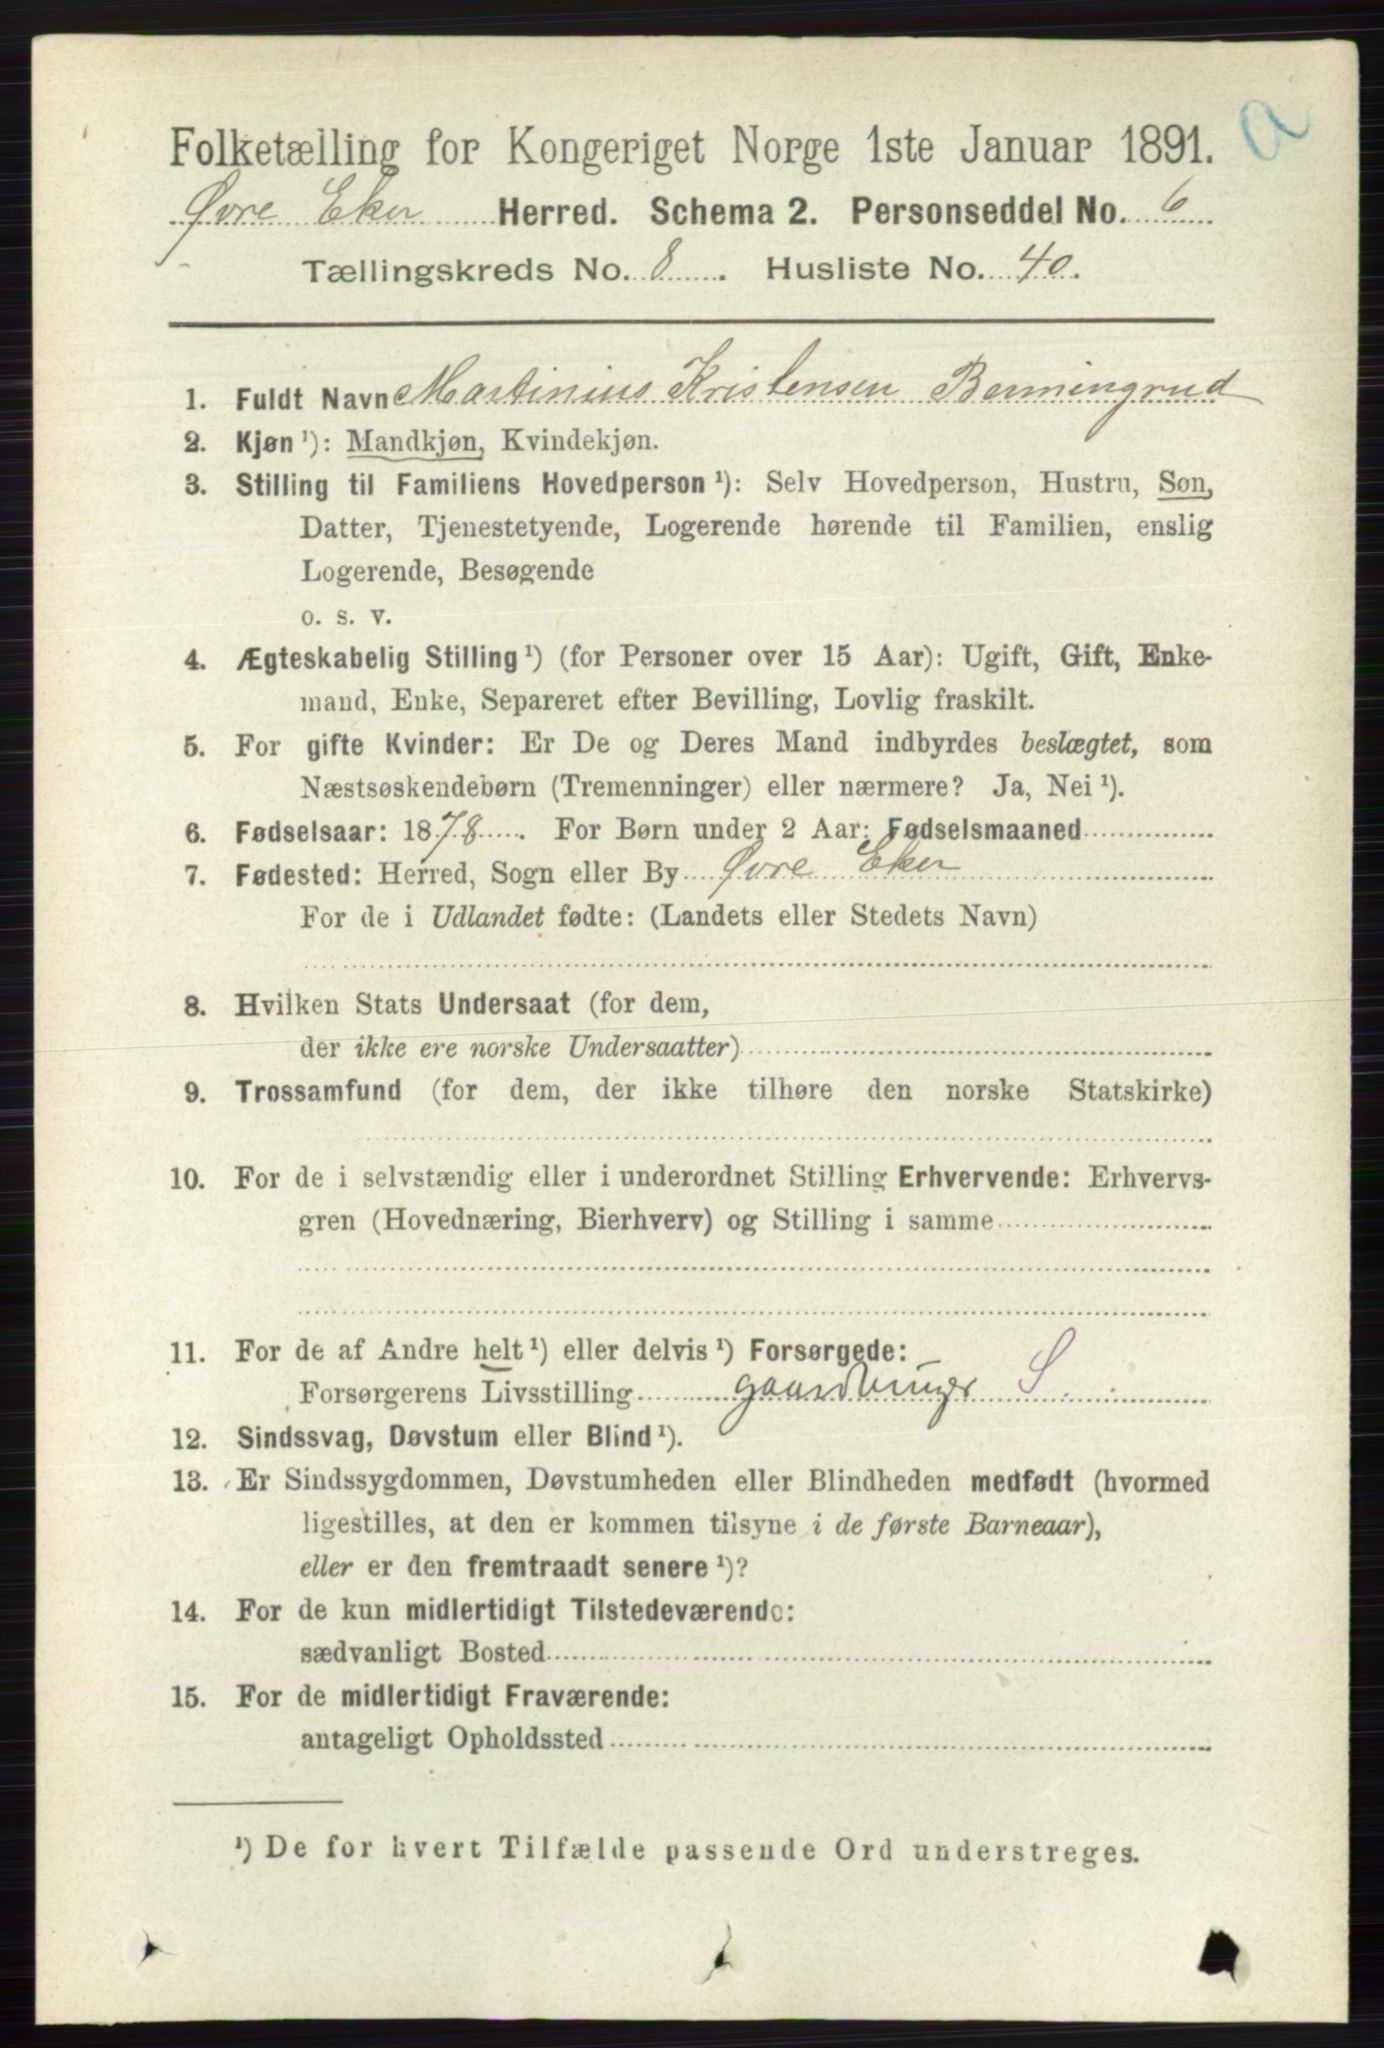 a
Folketælling for Kongeriget Norge 1ste Januar 1891.
Øvre Eker Herred. Schema 2. Personseddel No. 6
Tællingskreds No. 8. Husliste No. 40.
1. Fuldt Navn Martinius Kristensen Bermingrud
2. Kjøn ¹): Mandkjøn, Kvindekjøn.
3. Stilling til Familiens Hovedperson ¹): Selv Hovedperson, Hustru, Søn,
Datter, Tjenestetyende, Logerende hørende til Familien, enslig
Logerende, Besøgende
o. s. v.
4. Ægteskabelig Stilling ¹) (for Personer over 15 Aar): Ugift, Gift, Enke-
mand, Enke, Separeret efter Bevilling, Lovlig fraskilt.
5. For gifte Kvinder: Er De og Deres Mand indbyrdes beslægtet, som
Næstsøskendebørn (Tremenninger) eller nærmere? Ja, Nei ¹).
6. Fødselsaar: 1878. For Børn under 2 Aar: Fødselsmaaned
7. Fødested: Herred, Sogn eller By Øvre Eker
For de i Udlandet fødte: (Landets eller Stedets Navn)
8. Hvilken Stats Undersaat (for dem,
der ikke ere norske Undersaatter)
9. Trossamfund (for dem, der ikke tilhøre den norske Statskirke)
10. For de i selvstændig eller i underordnet Stilling Erhvervende: Erhvervs-
gren (Hovednæring, Bierhverv) og Stilling i samme
11. For de af Andre helt ¹) eller delvis ¹) Forsørgede:
Forsørgerens Livsstilling gaardbruger S
12. Sindssvag, Døvstum eller Blind ¹).
13. Er Sindssygdommen, Døvstumheden eller Blindheden medfødt (hvormed
ligestilles, at den er kommen tilsyne i de første Barneaar),
eller er den fremtraadt senere ¹)?
14. For de kun midlertidigt Tilstedeværende:
sædvanligt Bosted
15. For de midlertidigt Fraværende:
antageligt Opholdssted
¹) De for hvert Tilfælde passende Ord understreges.